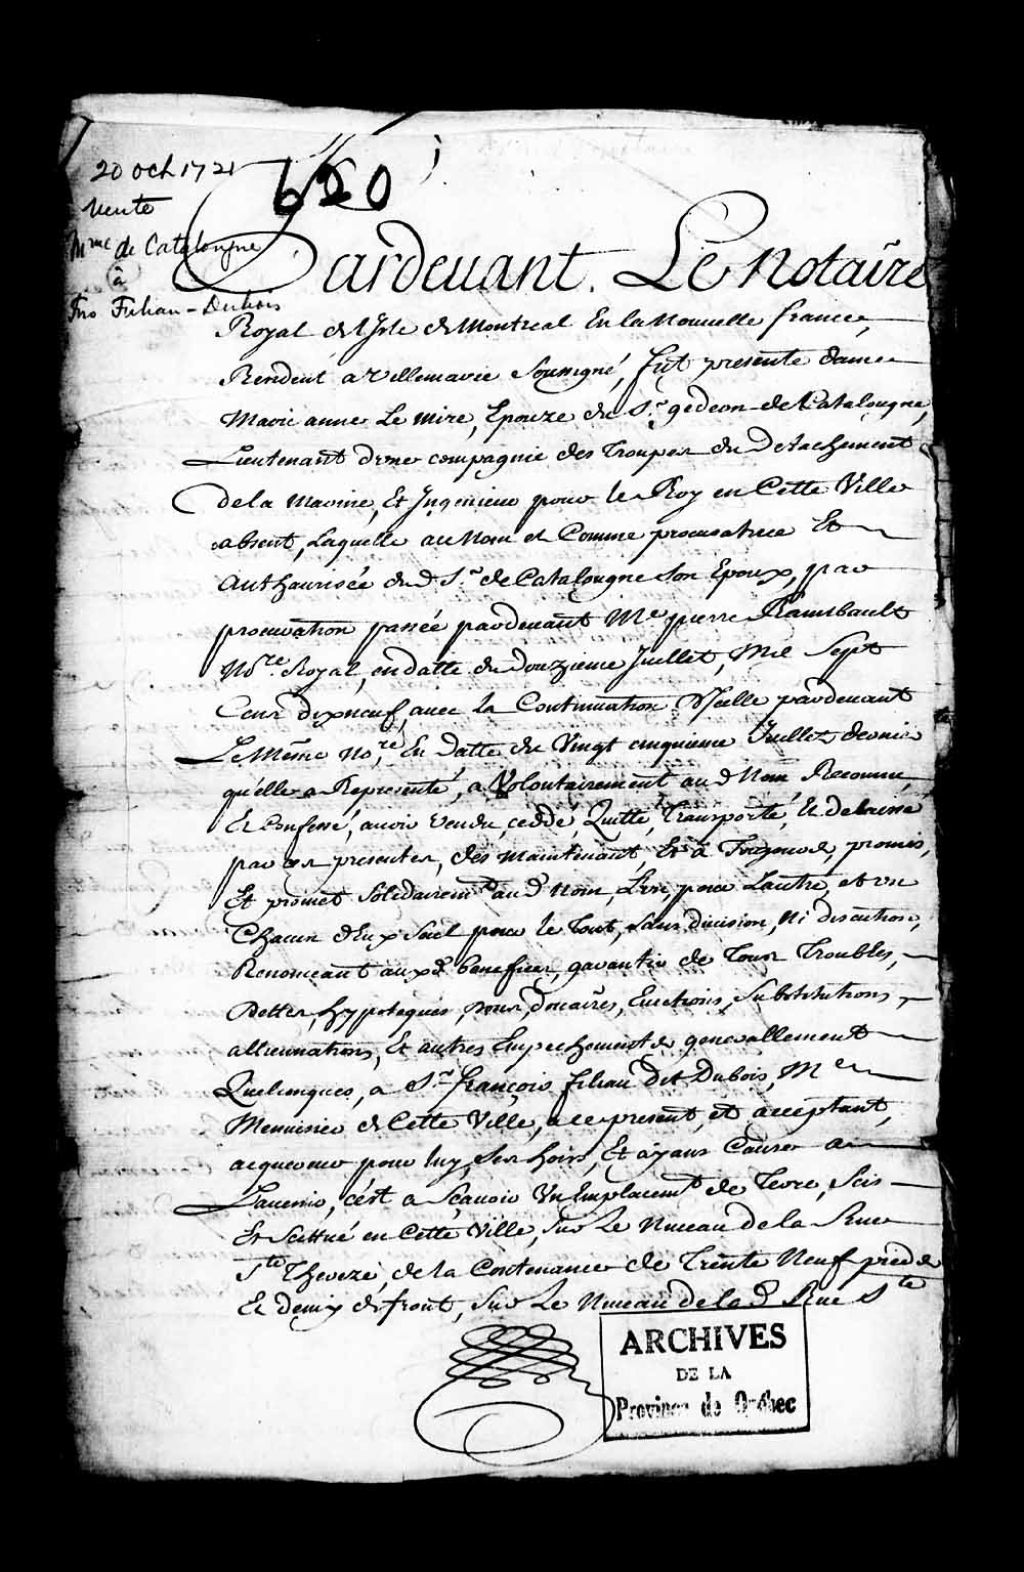 20 Oct 1721
Vente
Mme de Catalongne
à
Fro Filiau-Dubois
620
Pardeuant Le Notaire
Royal de l'Isle de Montreal En la Nouuelle france,
Resident a Villemarie Soussigné, fut presente dame
Marie anne Le mire, Epouze du Sr. gedeon de Catalougne,
Lieutenant d'une compagnie des Troupes du Detachement
de la Marine, Et Ingenieur pour le Roy en Cette Ville
absent, Laquelle au Nom et Comme procuratrice Et
Authaurisée du d Sr. de Catalougne Son Epoux, par
procuration passée pardeuant Me pierre Raimbault
Nore. Royal, en datte du douzieme Juillet, Mil Sept
Cens dixneuf, auec La Continuation d'Icelle pardeuant
Le Même Nore, En datte du Vingt cinquieme Juillet dernier
qu'elle a Representé, a Volontairement au d Nom, Reconnu,
Et Confessé, auoir Vendu, ceddé, Quitté, Transporté, Et delaissé
par ces presentes, des maintenant, Et a Toujours, promis,
Et promet Solidairemt. au d Nom, L'un, pour L'autre, et un
Chacun d'Eux Seul pour le Tout, Sans diuision, Ni discution,
Renonceant auxd. benefices, garantir de Tous Troubles,
Dettes, hypoteques, douaires, Euictions, Substitutions,
allienations, Et autres Empechements generallement
Quelconques, a Sr. françois filiau dit Dubois, Me
Menuisier de Cette Ville, a ce present, et acceptant,
acquereur pour luy, Ses hoirs, Et ayans Causes a
L'auenir, c'est a Scauoir Un Emplacemt. de Terre, Scis
Et Scittué en Cette Ville, Sur Le Niueau de la Rue
Ste Therèze, de la Contenance de Trente Neuf pieds
Et demy de front, Sur Le Niueau de la d. Rue Ste
ARCHIVES
DE LA
Province de Québec